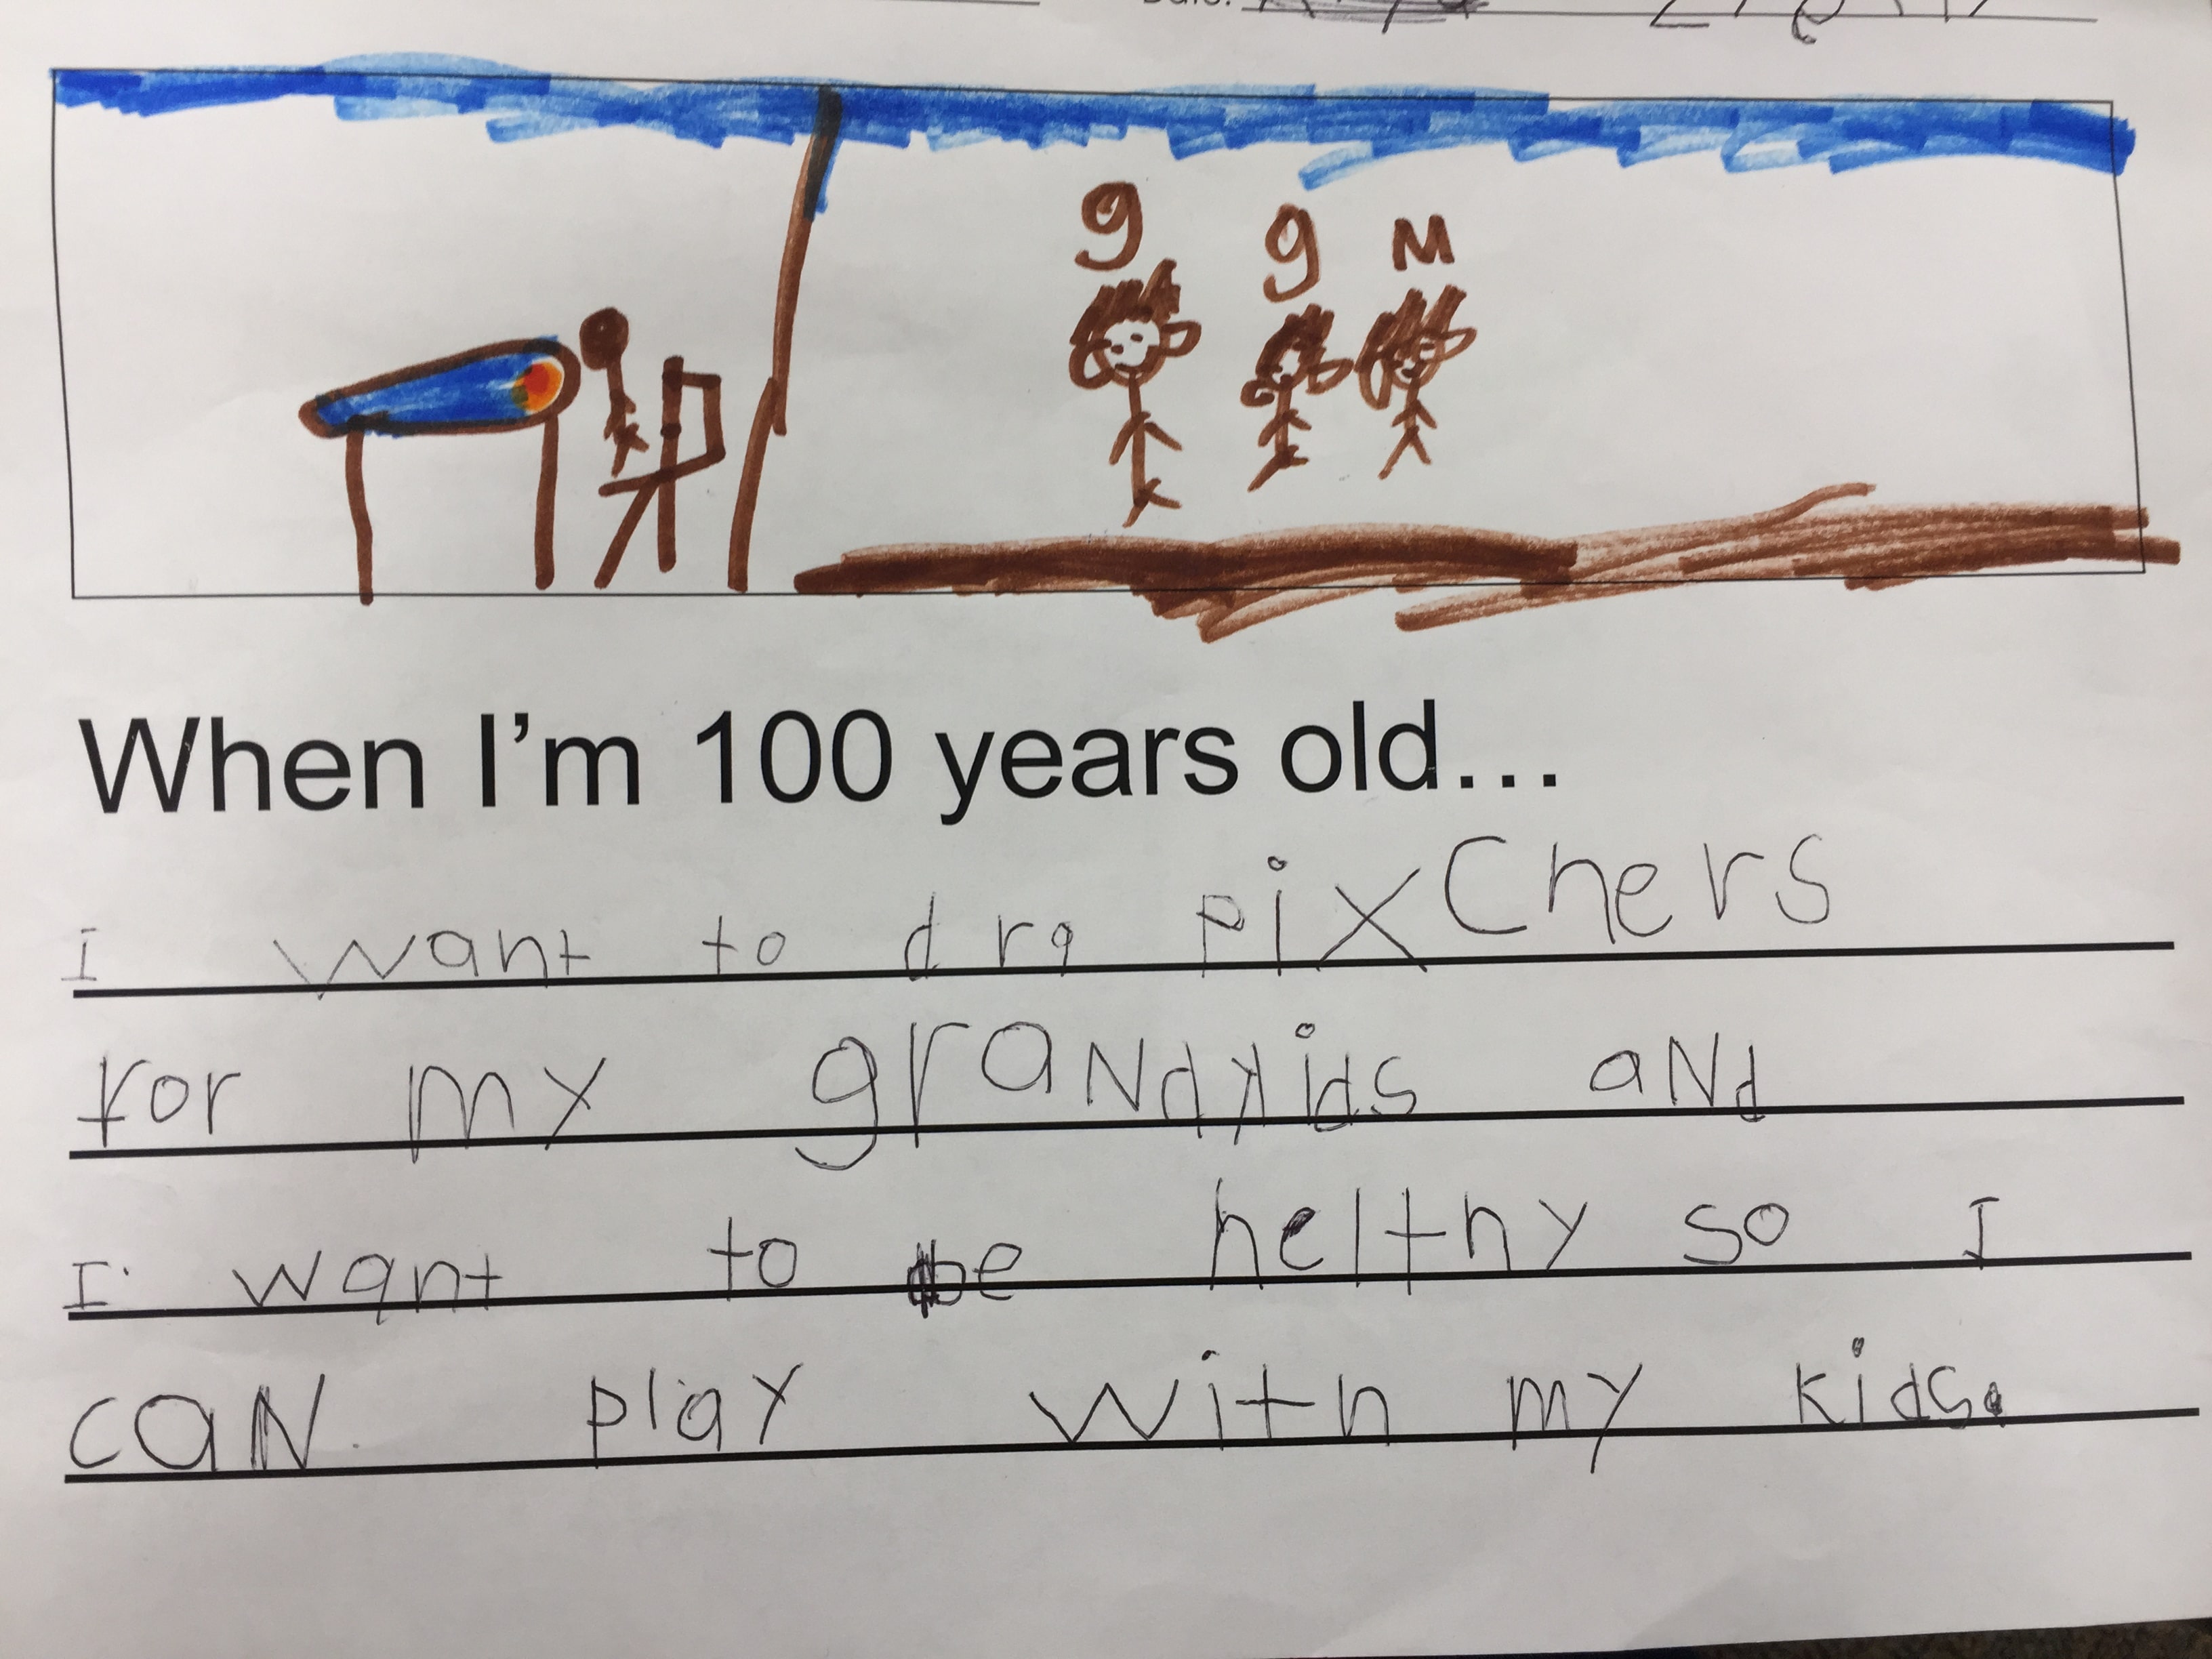 Date:
g g M
When I'm 100 years old...
I want to dra pixchers
for my graNdkids aNd
I want to be helthy so I
caN play with my kids.